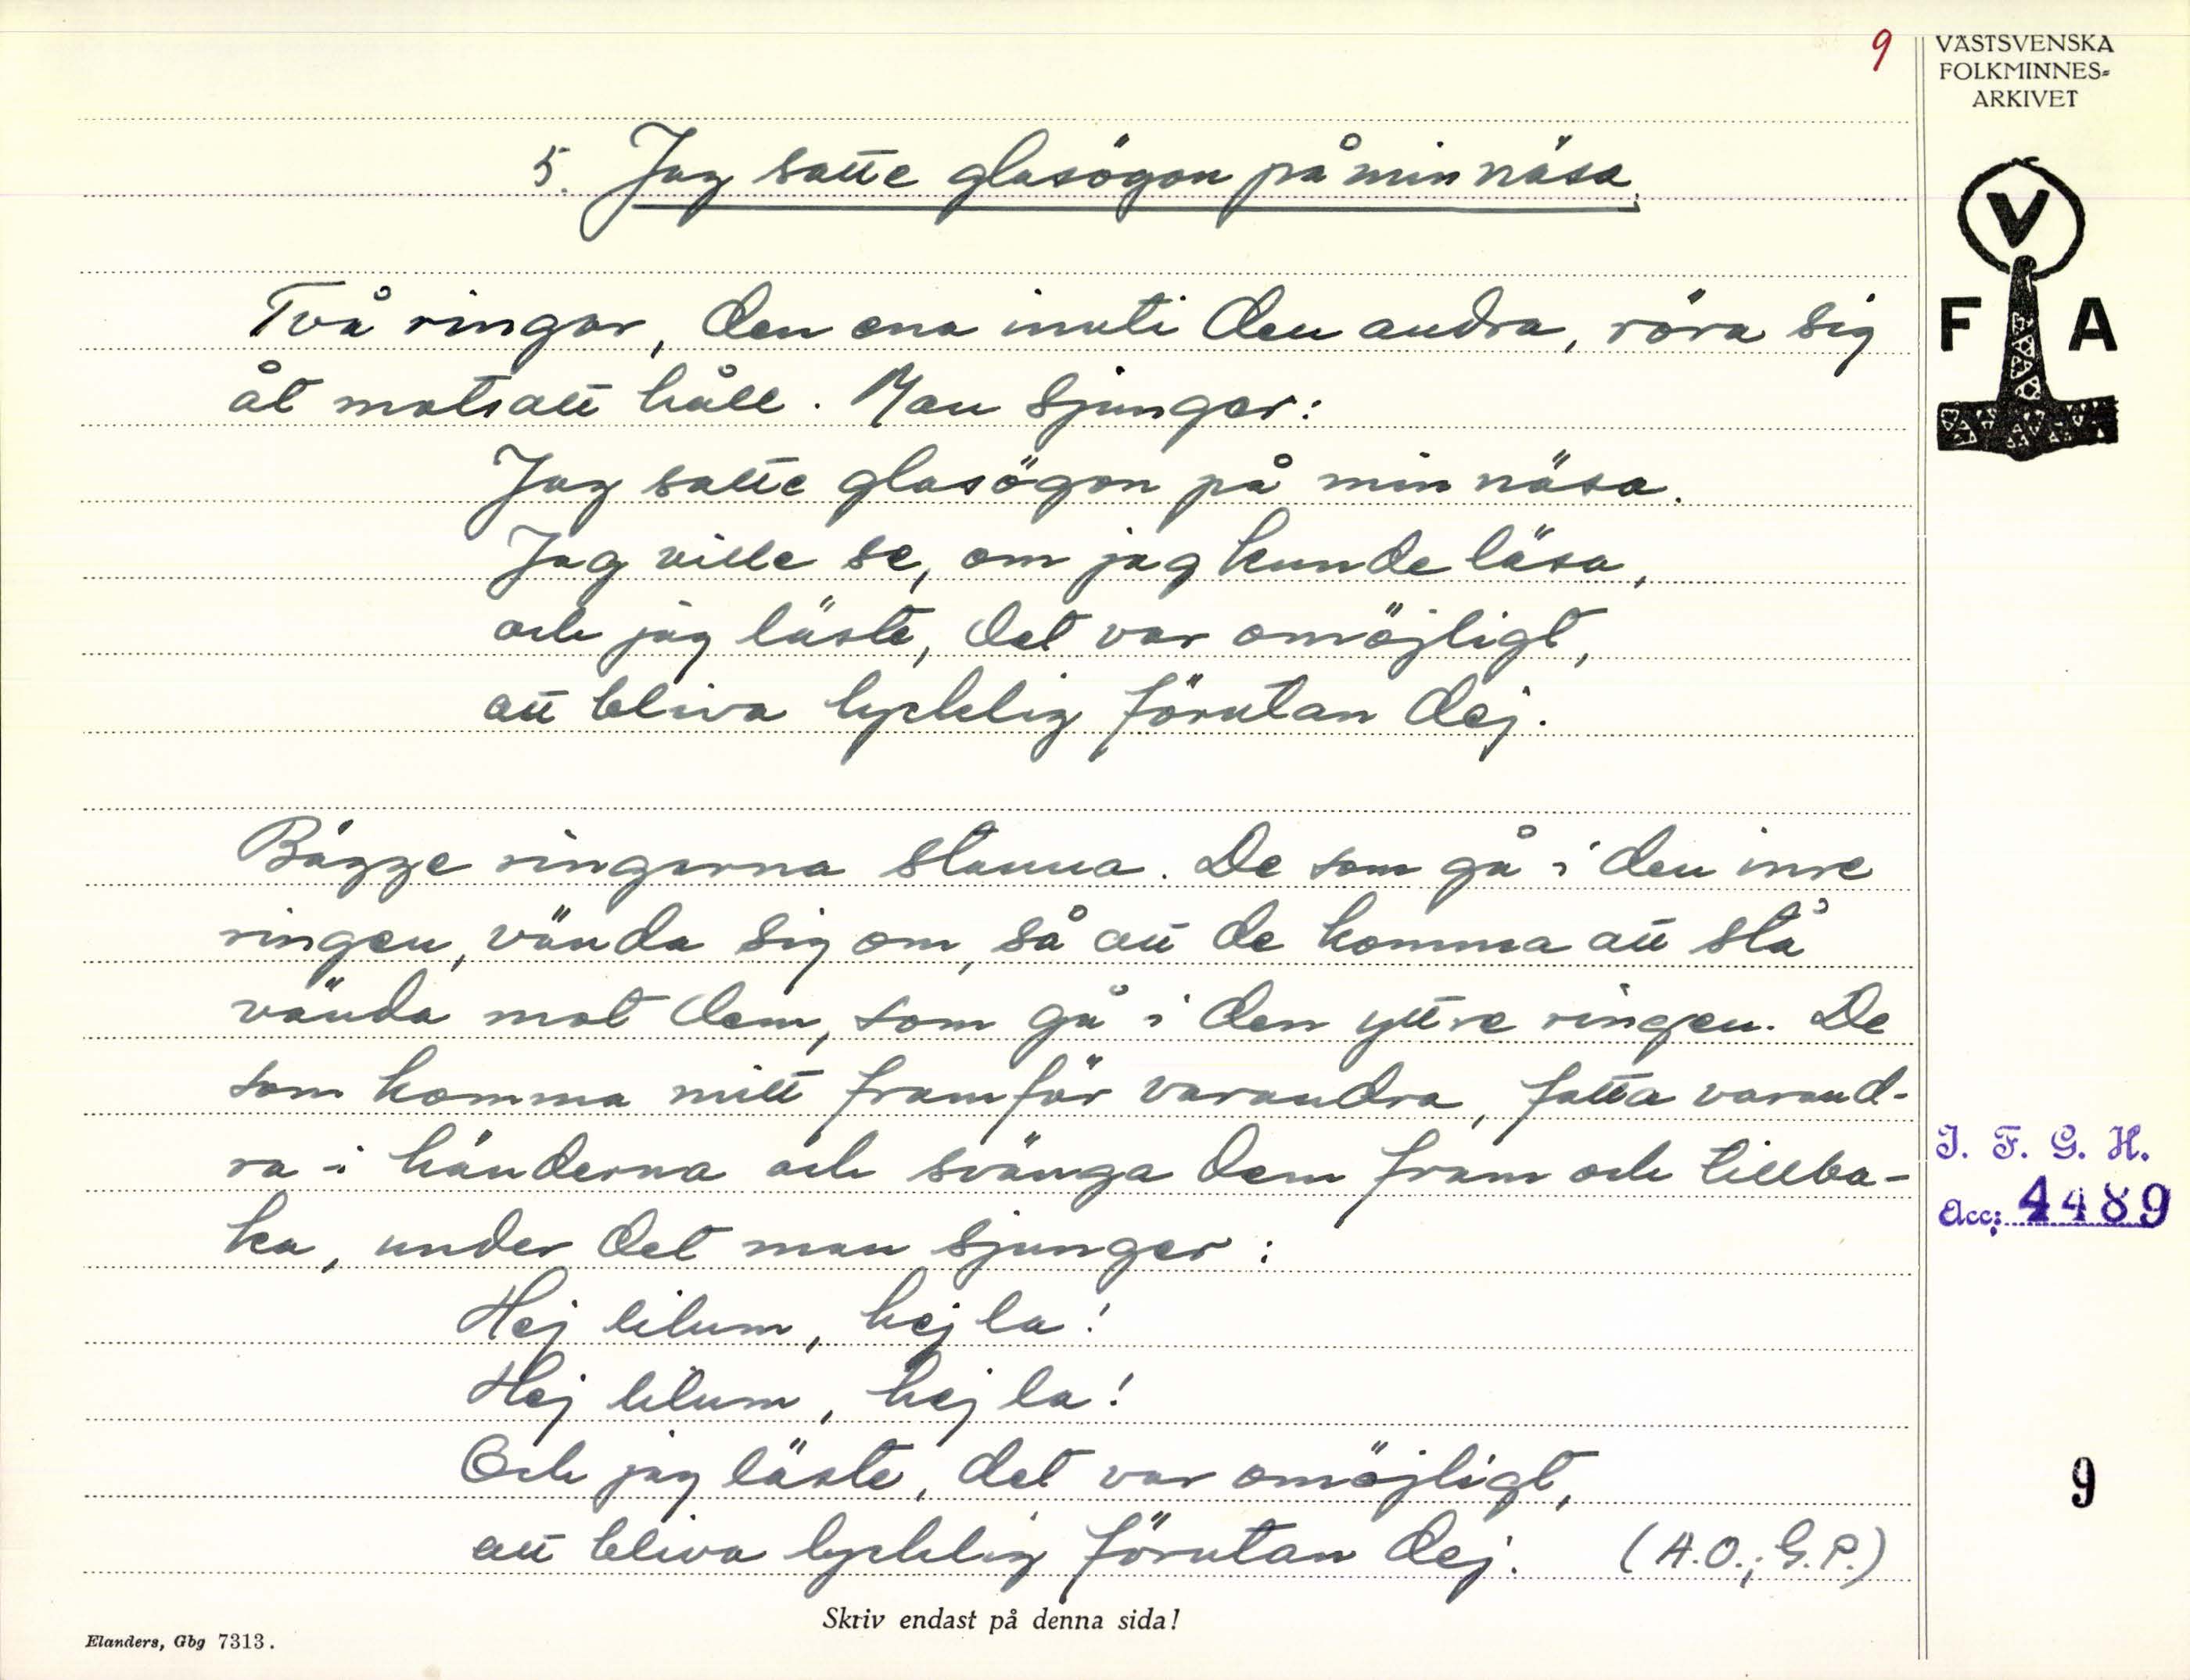 9
VÄSTSVENSKA
FOLKMINNES=
ARKIVET
5. Jag satte glasögon på min näsa.
V
F A
Två ringar, den ena inuti den andra, röra sig
åt motsatt håll. Man sjunger:
Jag satte glasögon på min näsa.
Jag ville se, om jag kunde läsa,
och jag läste, det var omöjligt,
att bliva lycklig förutan dej.
Bägge ringarna stanna. De som gå i den inre
ringen, vända sig om, så att de komma att stå
vända mot dem, som gå i den yttre ringen. De
som komma mitt framför varandra, fatta varand-
ra i händerna och svänga dem fram och tillba-
ka, under det man sjunger:
Hej lilum, hej la!
Hej lilum, hej la!
Och jag läste, det var omöjligt,
att bliva lycklig förutan dej. (A.O.; G.P.)
I. F. G. H.
Acc: 4489
9
Skriv endast på denna sida!
Elanders, Gbg 7313.